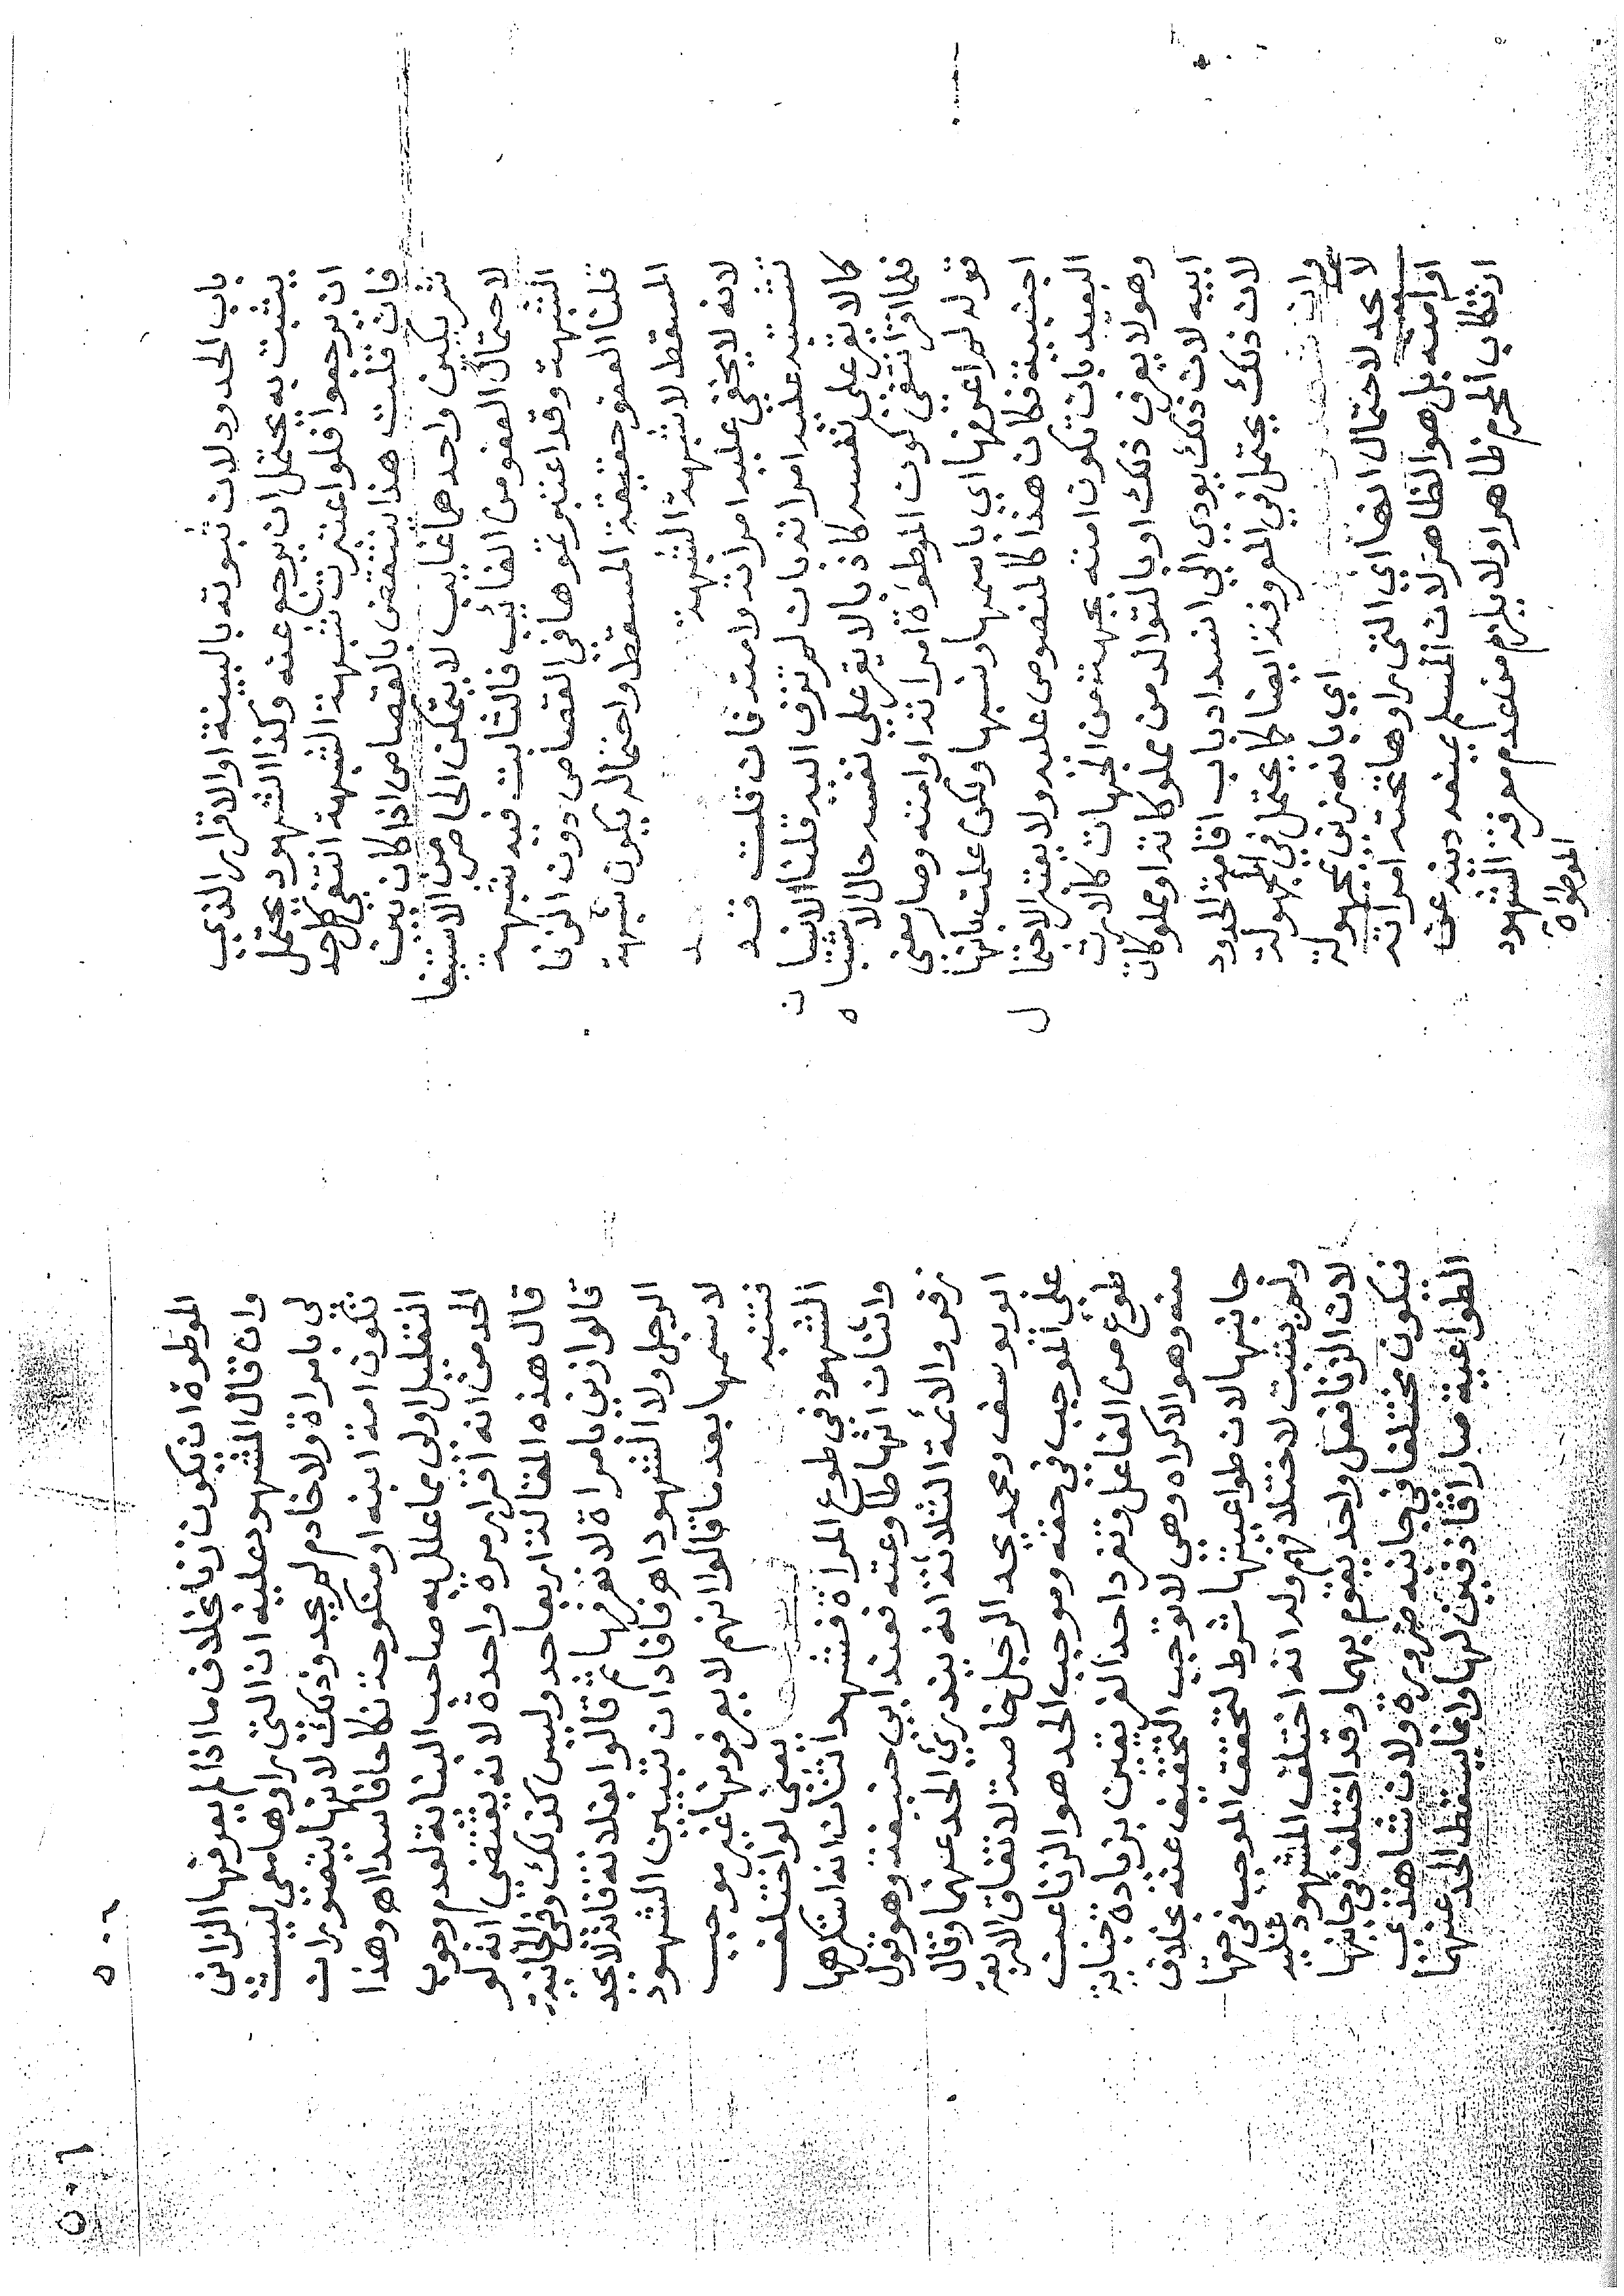 باب الحدود لان ثبوته بالبينة او الاقرار الذي
يثبت به يحتمل ان يرجع عنه وكذا الشهود يحتمل
ان يرجعوا فلو اعتبرت شبهة الشبهة انتفى كل حد
فان قلت هذا ينتقض بالقصاص اذا كان بين
شريكين واحدهما غايب لا يتمكن الحاضر من الاستيفا
لاحتمال العفو من الغائب فالثابت فيه شبهة
الشبهة وقد اعتبرتموها في القصاص دون الزنا
قلنا العفو حقيقة المسقط واحتماله يكون شبهة
المسقط لا شبهة الشبهة
لانه لا يخفى عليه امراته ولا امته فان قلت قد
تشتبه عليه امراته بان لم تزف اليه قلنا الانسان
كما لا يقر على نفسه كاذبا لا يقر على نفسه حال الاشتباه
فلما اقر انتفى كون الموطوة امراته او امته وصار معنى
قوله لم اعرفها اي باسمها ونسبها ولكن علمت بانها
اجنبية فكان هذا كالمنصوص عليه ولا يعتبر الاحتمال
البعيد بان تكون امته بجهة من الجهات كالارث
وهو لا يعرف ذلك او بالتوالد من مملوكاته او مملوكات
ابيه لان ذلك يودي الى انسداد باب اقامة الحدود
لان ذلك يحتمل في المعروفة ايضا كما يحتمل في المجهولة
وان شهدوا اي بانه زنى بمجهولة
لا يحد لاحتمال انها اي التي راوها تحته امراته
او امته بل هو الظاهر لان المسلم يمنعه دينه عن
ارتكاب المحرم ظاهرا ولا يلزم من عدم معرفة الشهود
الموطوة
٥٠٦
الموطوة ان يكون زنا بخلاف ما اذا لم يعرفها الزاني
وان قال المشهود عليه ان التي راوها معي ليست
لي بامراة ولا خادم لم يحد وذلك لانها يتصور ان
تكون امة ابنه او منكوحة نكاحا فاسدا اهـ وهذا
التعليل اولى مما علل به صاحب البناية لعدم وجوب
الحد من انه اقرار مرة واحدة لانه يقتضي انه لو
قال هذه المقالة اربعا حد وليس كذلك وفي الخانية
قالوا زنى بامراة لا نعرفها ثم قالوا بفلانة فانه لا يحد
الرجل ولا الشهود اهـ فافاد ان تبيين الشهود
لاسمها بعد ما قالوا انهم لا يعرفونها غير موجب
فتنبه يعني لو اختلف
الشهود في طوع المراة فشهد اثنان انه استكرهها
واثنان انها طاوعته فعند ابي حنيفة وهو قول
زفر والائمة الثلاثة انه يندرئ الحد عنهما وقال
ابو يوسف ومحمد يحد الرجل خاصة لاتفاق الاربعة
على الموجب في حقه وموجب الحد هو الزنا عن
طوع من الفاعل وتفرد احد الفريقين بزيادة جناية
منه وهو الاكراه وهي لا توجب التخفيف عنه بخلاف
جانبها لان طواعيتها شرط لتحقق الموجب في حقها
ولم يثبت لاختلافهم وله انه اختلف المشهود عليه
لان الزنا فعل واحد يقوم بهما وقد اختلف في جانبها
فيكون مختلفا في جانبه ضرورة ولان شاهدي
الطواعية صارا قاذفين لها وانما يسقط الحد عنهما
٥٠٦